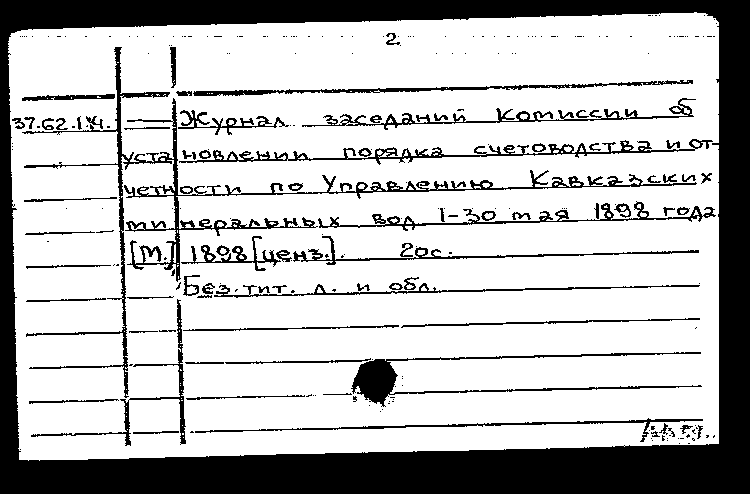 2.
37.62.1.41. — Журнал заседаний Комиссии об
установлении порядка счетоводства и от-
четности по Управлению Кавказских
минеральных вод 1-30 мая 1898 года.
[М.] 1898 [ценз.]. 20с.
Без тит. л. и обл.